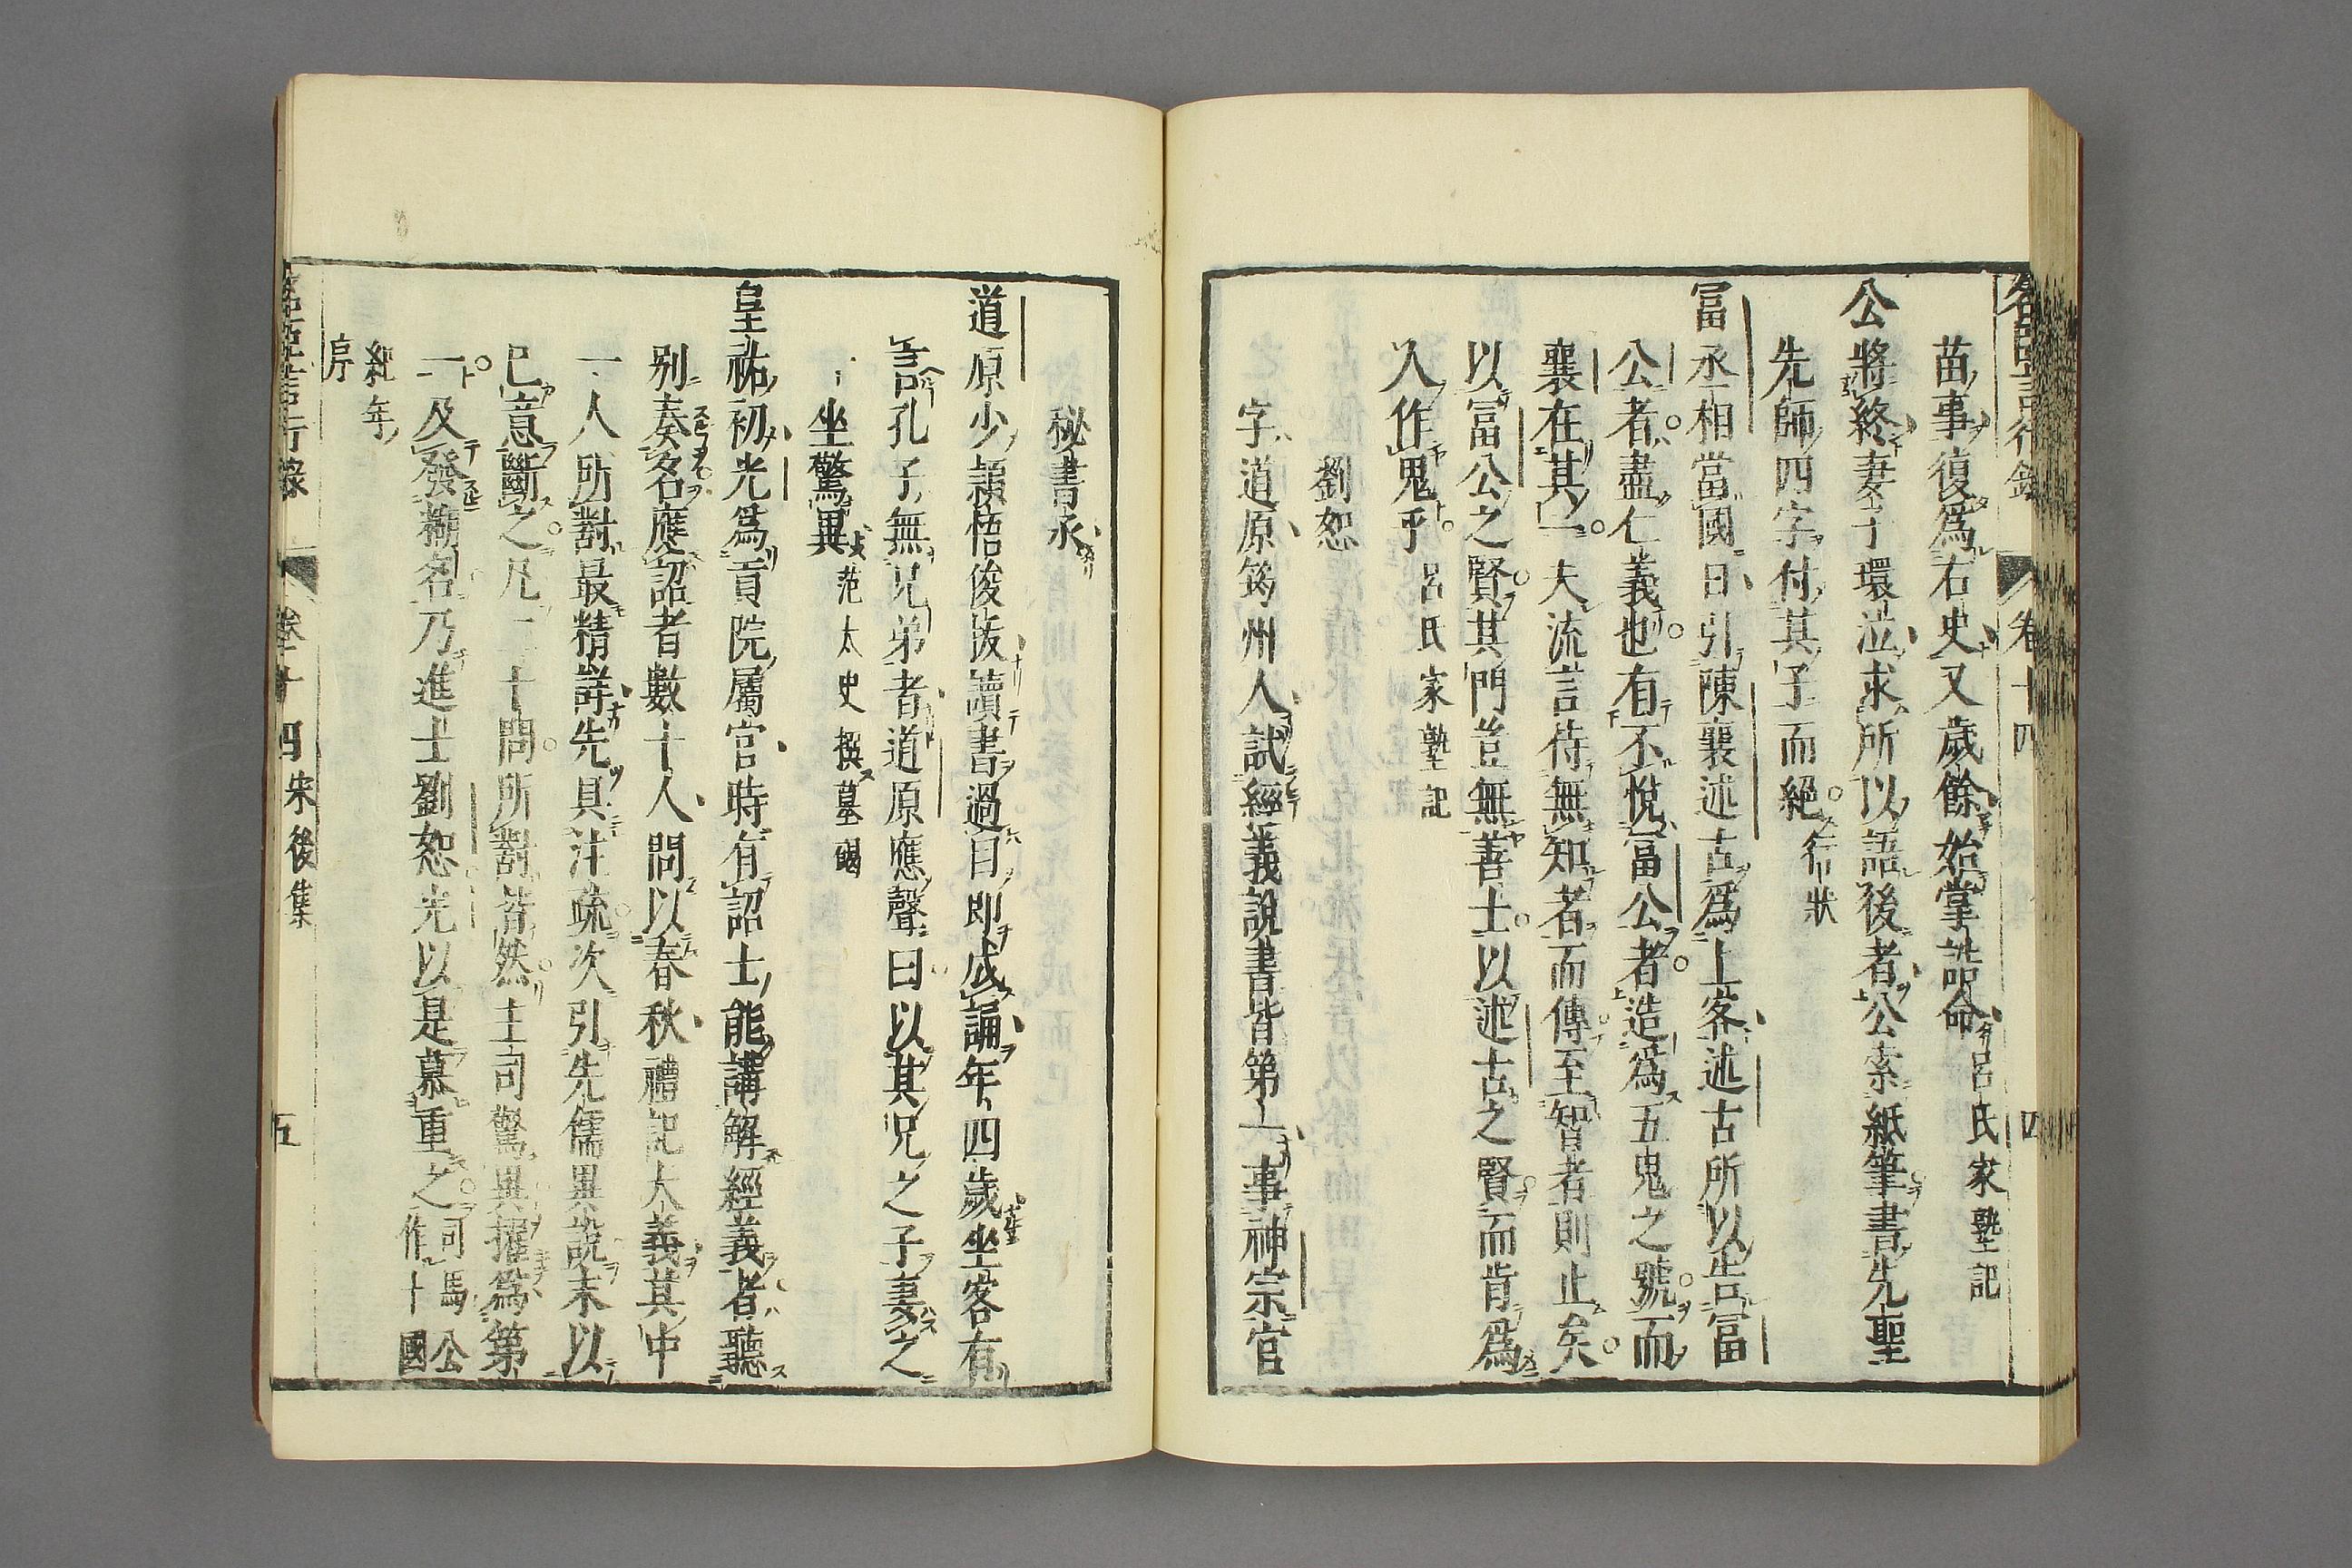 名臣言行錄 卷十四 四
苗事復爲右史又歲餘始掌誥命呂氏家塾記
公將終妻子環泣求所以語後者公索紙筆書先聖
先師四字付其子而絕行狀
富丞相當國日引陳襄述古爲上客述古所以告富
公者盡仁義也有不悅富公者造爲五鬼之號而
襄在其一夫流言待無知者而傳至智者則止矣
以富公之賢其門豈無善士以述古之賢而肯爲
人作鬼乎呂氏家塾記
劉恕
字道原筠州人試經義說書皆第一事神宗官
秘書丞
道原少穎悟俊拔讀書過目即成誦年四歲坐客有
言孔子無兄弟者道原應聲曰以其兄之子妻之
一坐驚異范太史撰墓碣
皇祐初光爲貢院屬官時有詔士能講解經義者聽
別奏名應詔者數十人問以春秋禮記大義其中
一人所對最精詳先具注疏次引先儒異說末以
己意斷之凡二十問所對皆然主司驚異擢爲第
一及發糊名乃進士劉恕光以是慕重之司馬公作十國
紀年
序
名臣言行錄 卷十四 宋後集 五